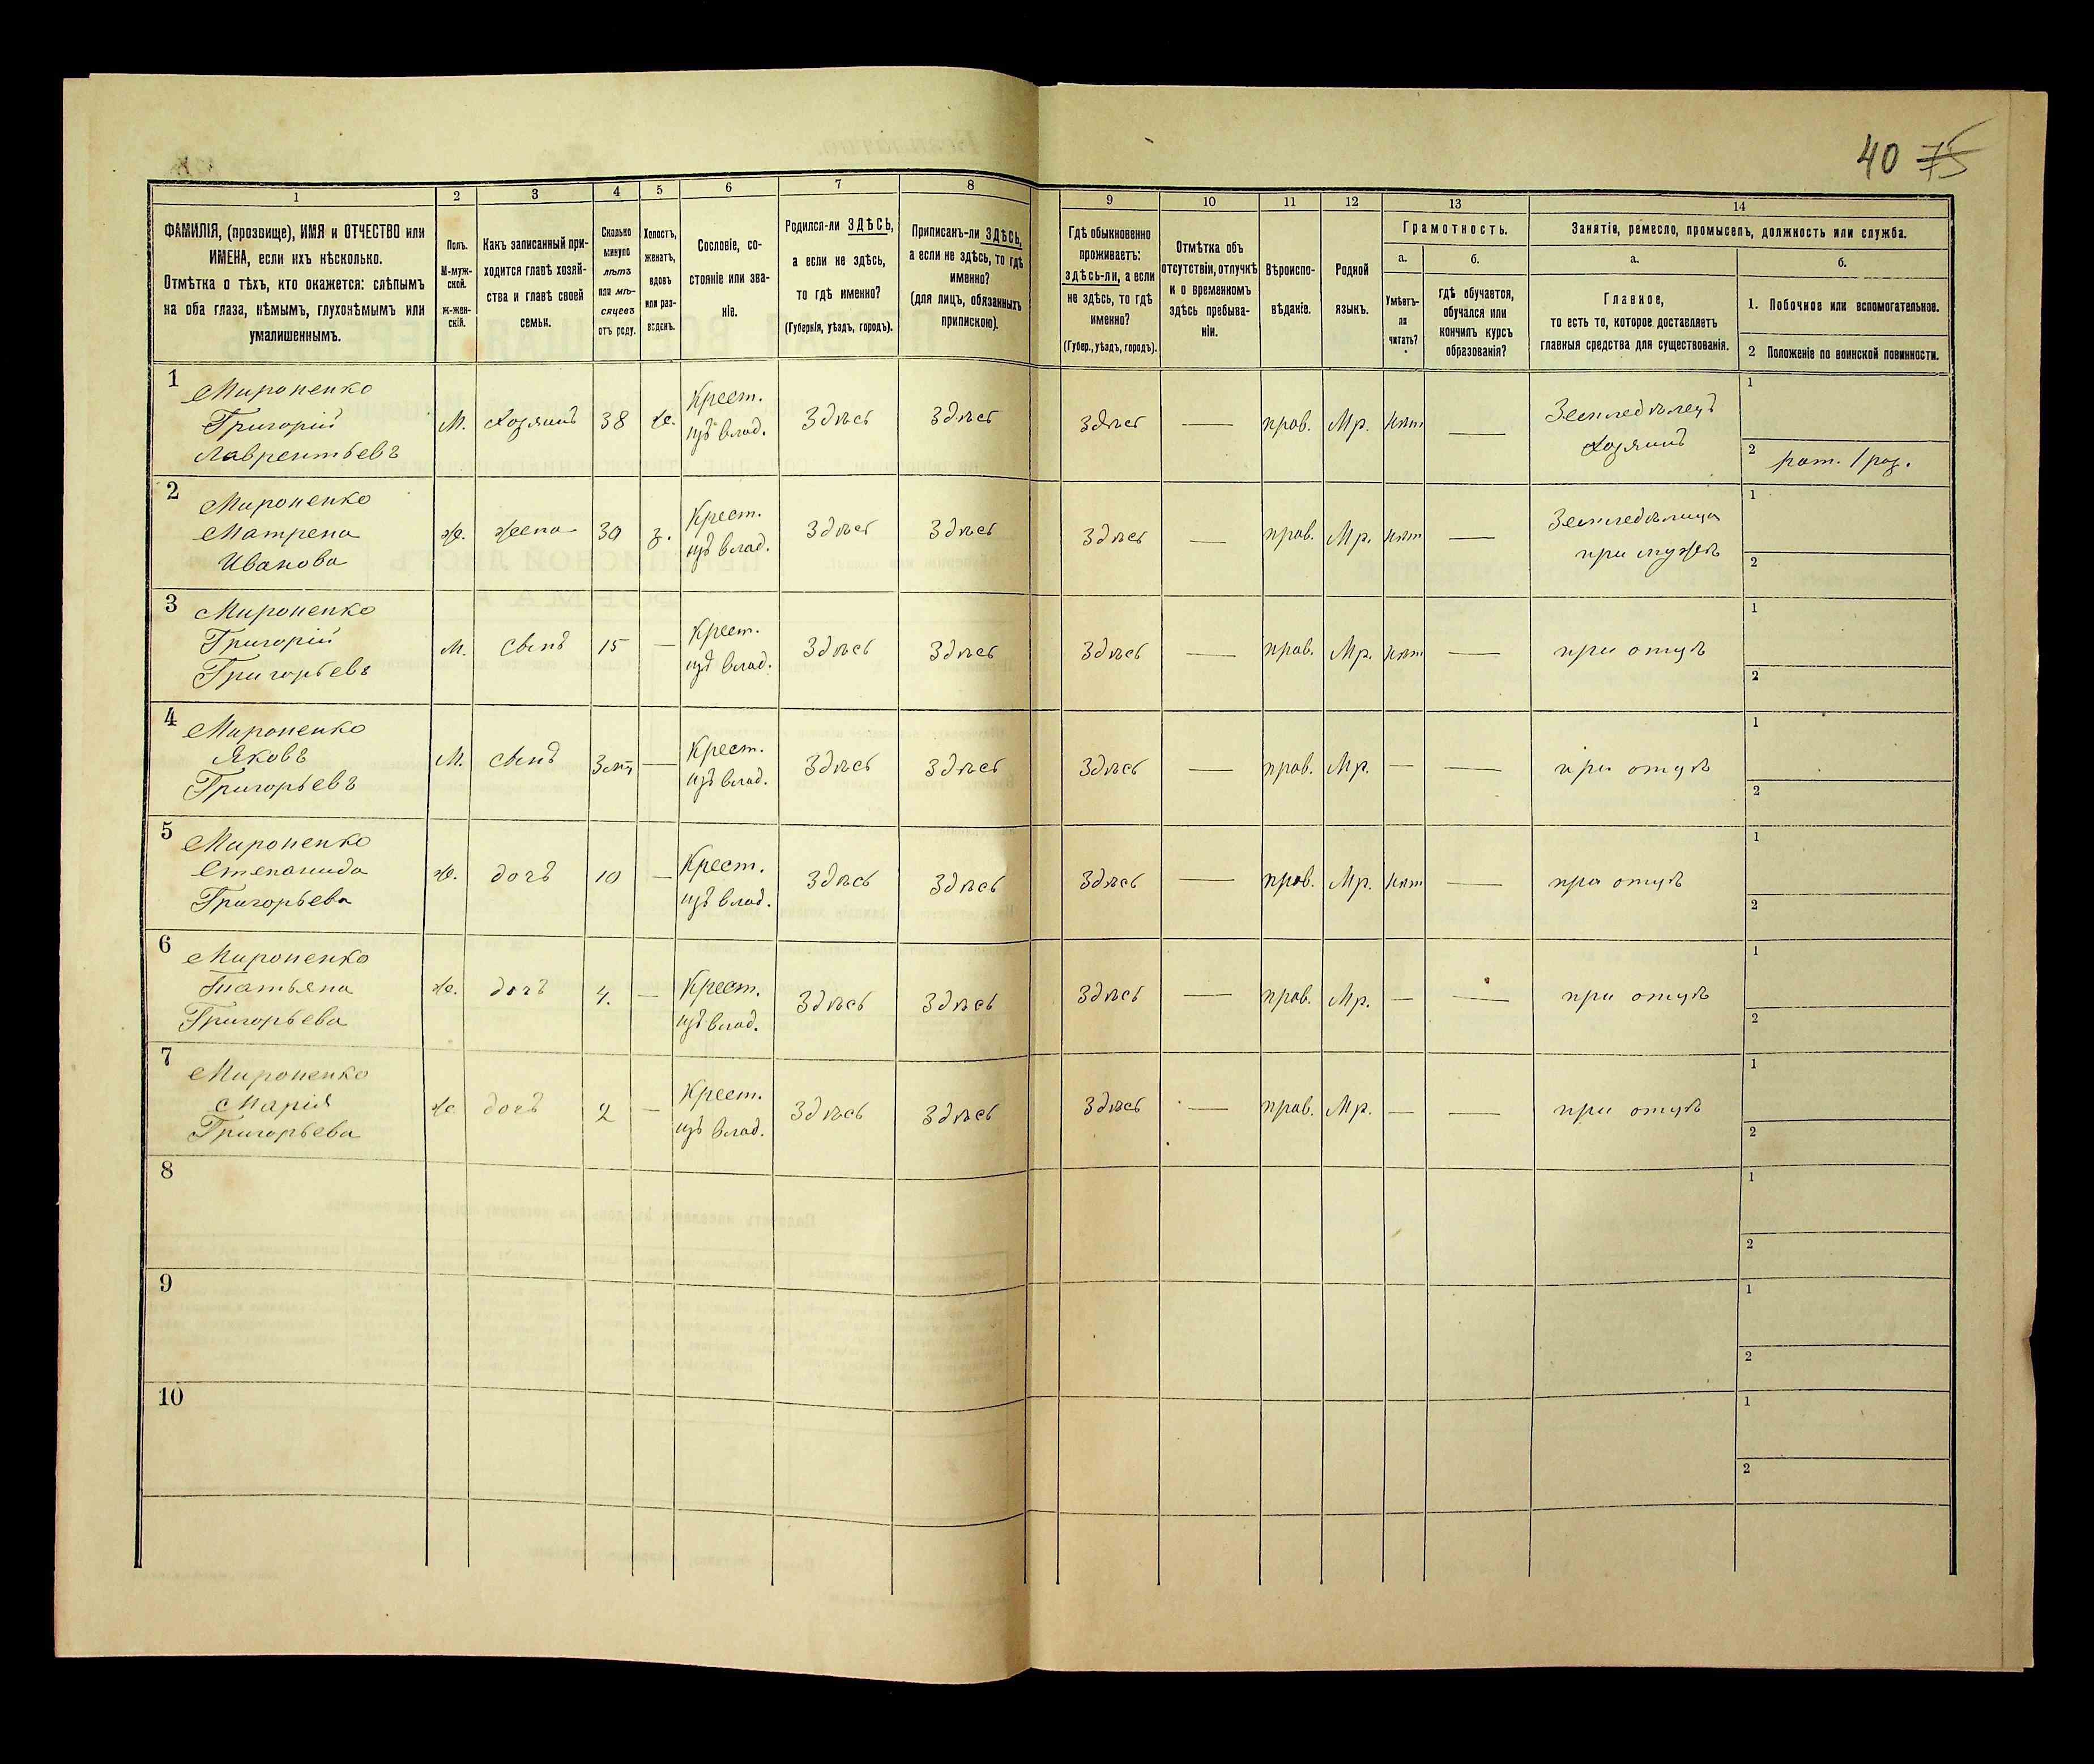 40 75
1
2
3
4
5
6
7
8
9
10
11
12
13
14
ФАМИЛІЯ, (прозвище), ИМЯ и ОТЧЕСТВО или
ИМЕНА, если ихъ нѣсколько.
Отмѣтка о тѣхъ, кто окажется: слѣпымъ
на оба глаза, нѣмымъ, глухонѣмымъ или
умалишеннымъ.
Полъ.
М-муж-
ской.
Ж-жен-
скій.
Какъ записанный при-
ходится главѣ хозяй-
ства и главѣ своей
семьи.
Сколько
минуло
лѣтъ
или мѣ-
сяцевъ
отъ роду.
Холостъ,
женатъ,
вдовъ
или раз-
веденъ.
Сословіе, со-
стояніе или зва-
ніе.
Родился-ли ЗДѢСЬ,
а если не здѣсь,
то гдѣ именно?
(Губернія, уѣздъ, городъ).
Приписанъ-ли ЗДѢСЬ,
а если не здѣсь, то гдѣ
именно?
(для лицъ, обязанныхъ
припискою).
Гдѣ обыкновенно
проживаетъ:
здѣсь-ли, а если
не здѣсь, то гдѣ
именно?
(Губер., уѣздъ, городъ).
Отмѣтка объ
отсутствіи, отлучкѣ
и о временномъ
здѣсь пребыва-
ніи.
Вѣроиспо-
вѣданіе.
Родной
языкъ.
Грамотность.
а.
Умѣетъ-
ли
читать?
б.
гдѣ обучается,
обучался или
кончилъ курсъ
образованія?
Занятіе, ремесло, промыселъ, должность или служба.
а.
Главное,
то есть то, которое доставляетъ
главныя средства для существованія.
б.
1. Побочное или вспомогательное.
2 Положеніе по воинской повинности.
1
Мироненко
Григорій
Лаврентьевъ
М. Хозяинъ 38 ж. Крест.
изъ влад. Здѣсь Здѣсь Здѣсь — прав. Мр. нѣт — Земледѣлецъ
Хозяинъ
1
2 рат. 1 раз.
2
Мироненко
Матрена
Иванова
Ж. жена 30 з. Крест.
изъ влад. Здѣсь Здѣсь Здѣсь — прав. Мр. нѣт — Земледѣлица
при мужѣ
1
2
3
Мироненко
Григорій
Григорьевъ
М. сынъ 15 — Крест.
изъ влад. Здѣсь Здѣсь Здѣсь — прав. Мр. нѣт — при отцѣ
1
2
4
Мироненко
Яковъ
Григорьевъ
М. сынъ — Крест.
изъ влад. Здѣсь Здѣсь Здѣсь — прав. Мр. — — при отцѣ
1
2
5
Мироненко
Степанида
Григорьева
Ж. дочь 10 — Крест.
изъ влад. Здѣсь Здѣсь Здѣсь — прав. Мр. нѣт — при отцѣ
1
2
6
Мироненко
Татьяна
Григорьева
Ж. дочь 4. — Крест.
изъ влад. Здѣсь Здѣсь Здѣсь — прав. Мр. — — при отцѣ
1
2
7
Мироненко
Марія
Григорьева
Ж. дочь 2 — Крест.
изъ влад. Здѣсь Здѣсь Здѣсь — прав. Мр. — — при отцѣ
1
2
8
1
2
9
1
2
10
1
2